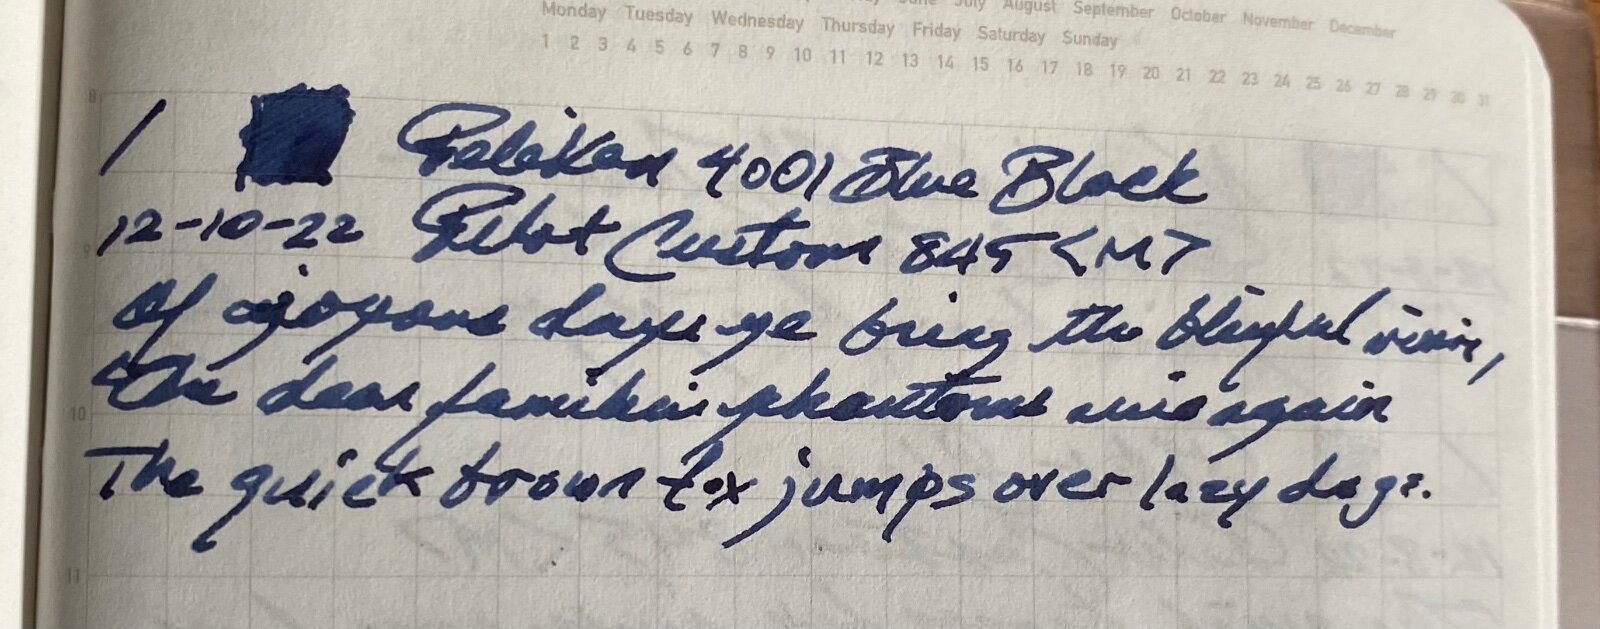 June July August September October November December
Monday Tuesday Wednesday Thursday Friday Saturday Sunday
1 2 3 4 5 6 7 8 9 10 11 12 13 14 15 16 17 18 19 20 21 22 23 24 25 26 27 28 29 30 31
8
/ Pelikan 4001 Blue Black
12-10-22 Pilot Custom 845 <M>
9
Of joyous days ye bring the blissful vision,
The dear familiar phantoms rise again
10
The quick brown fox jumps over lazy dogs.
11